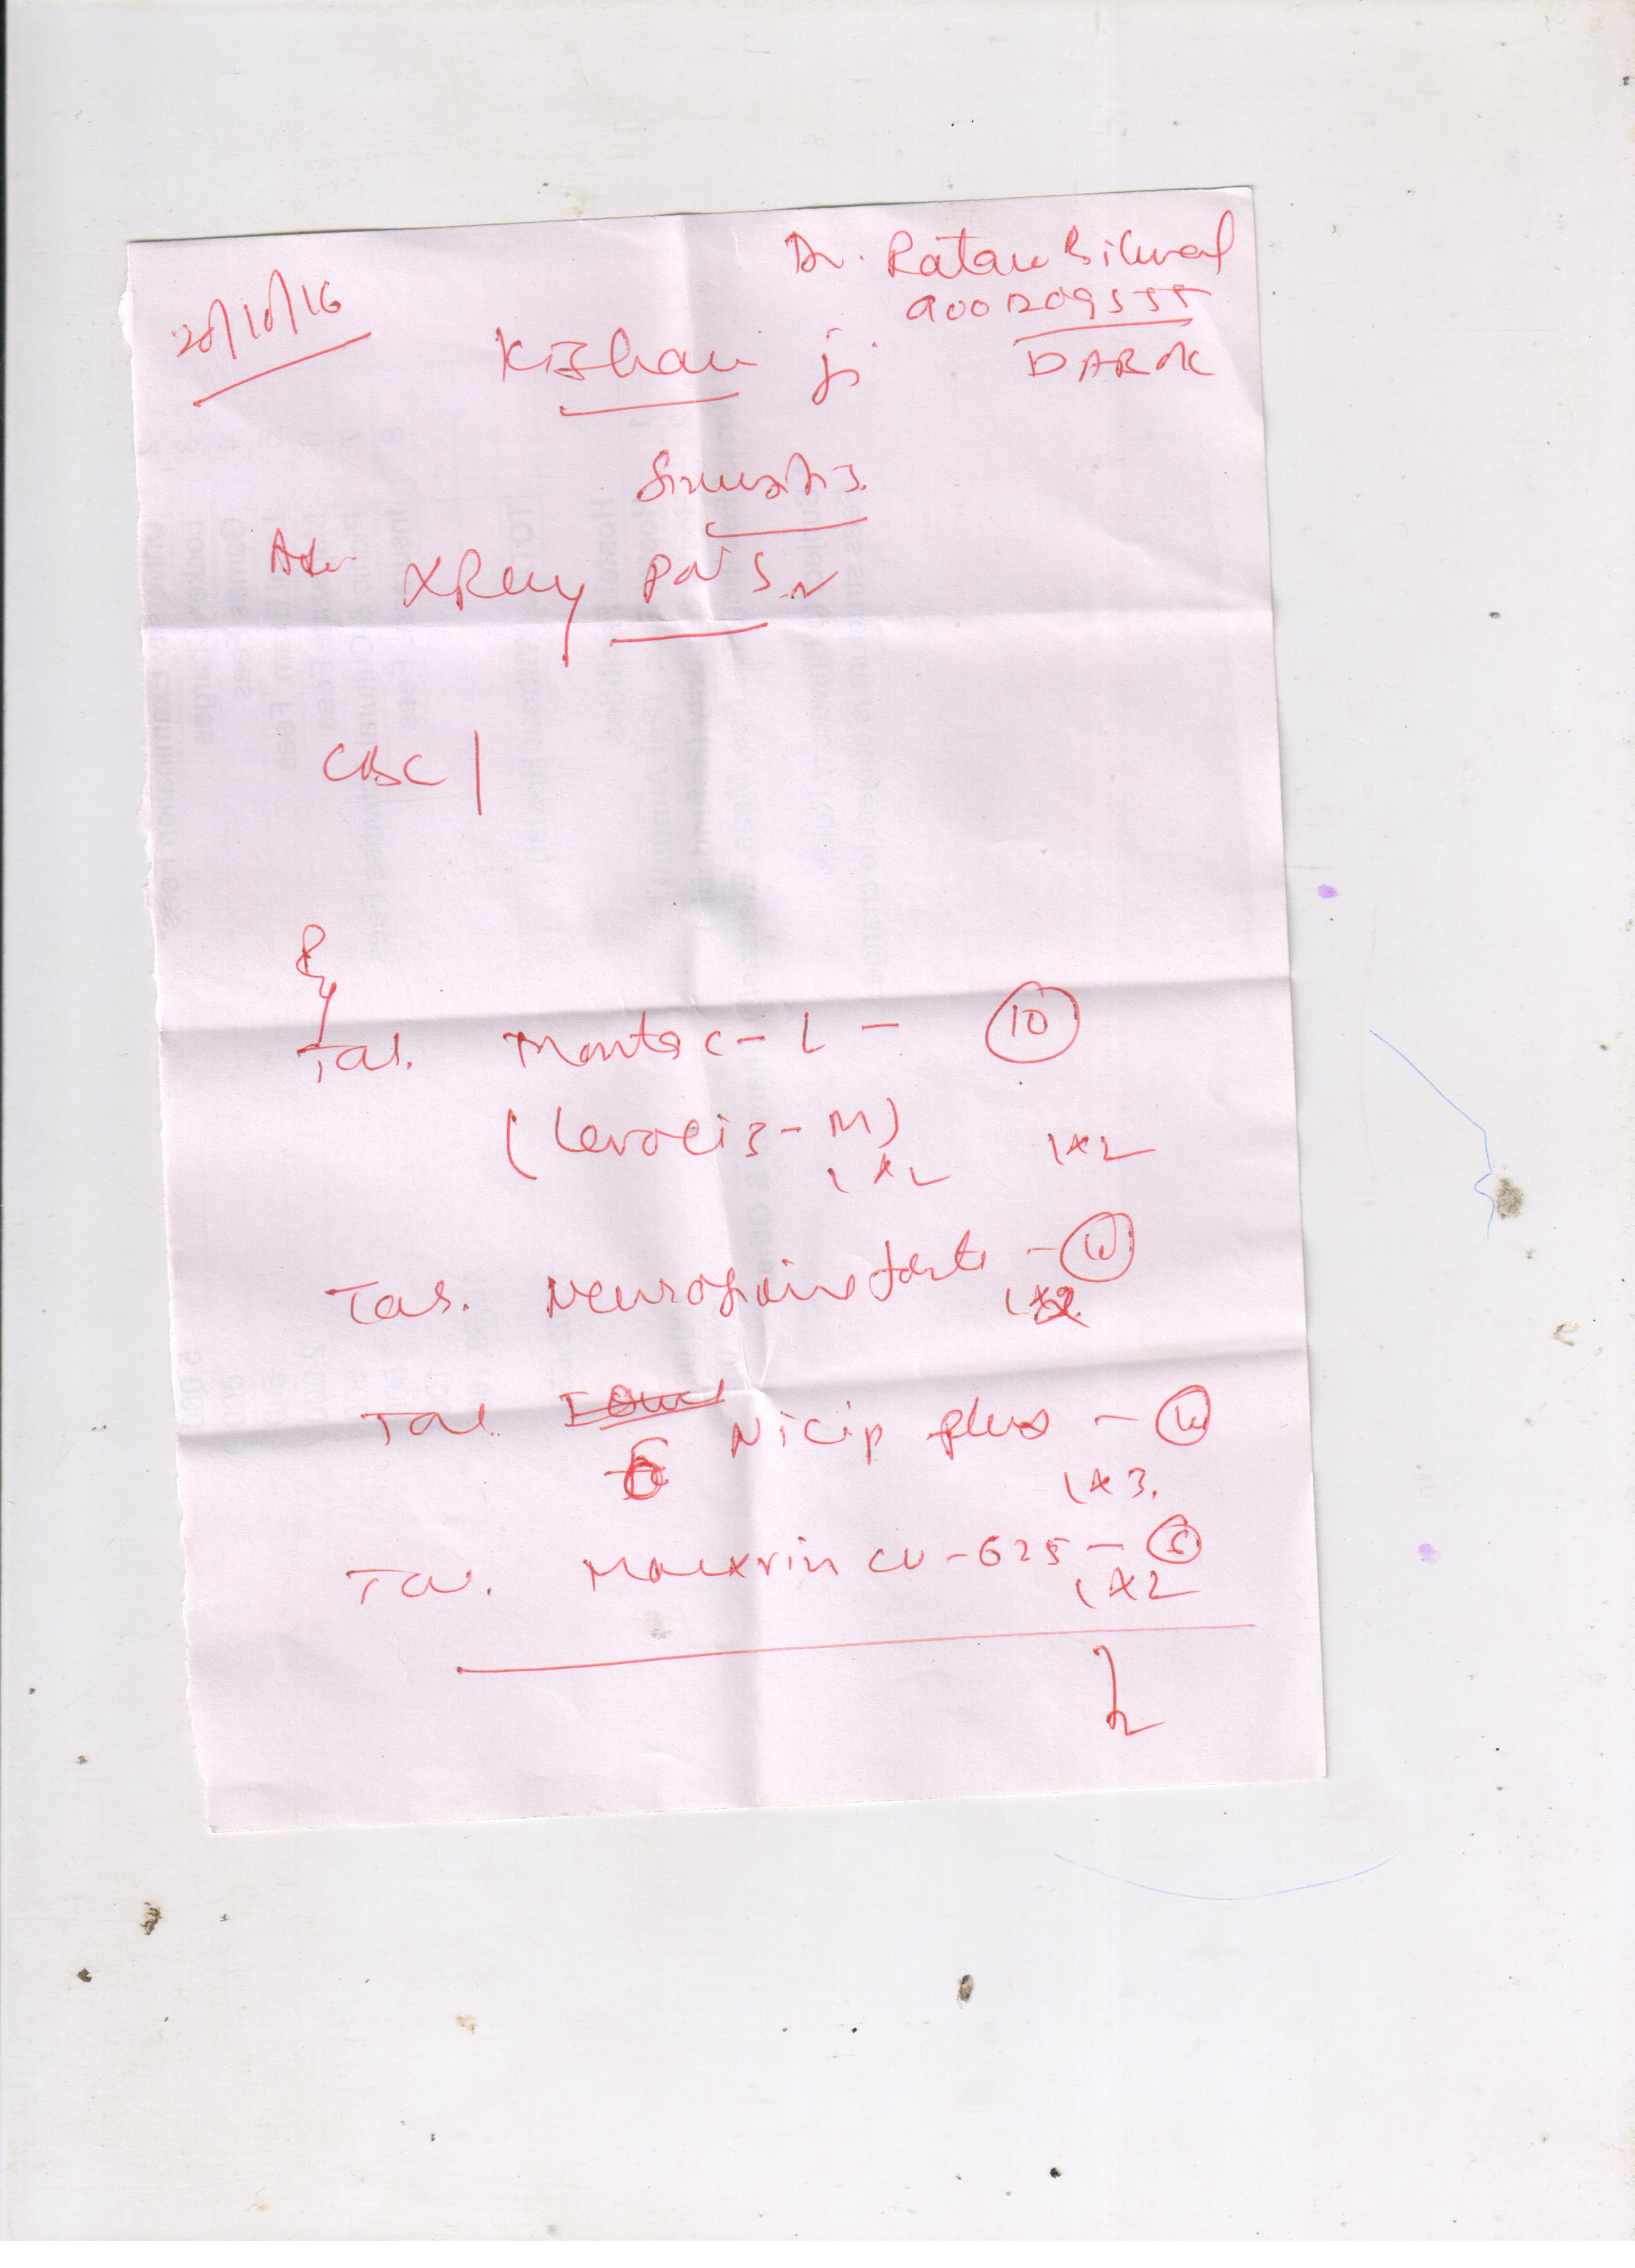 Dr. Ratan Bilwal
9001209555
20/10/16
Kishan ji
DARMC
Sinusitis.
Adv XRay PNS
CBC
Rx
Tab. Montec-L - 10
(Levocis-M) 1x2
1x2
Tab. Neurogain forte - 10
Tab. Nicip plus - 10
1x3.
Tab. Moxrin CV-625 - 5
1x2